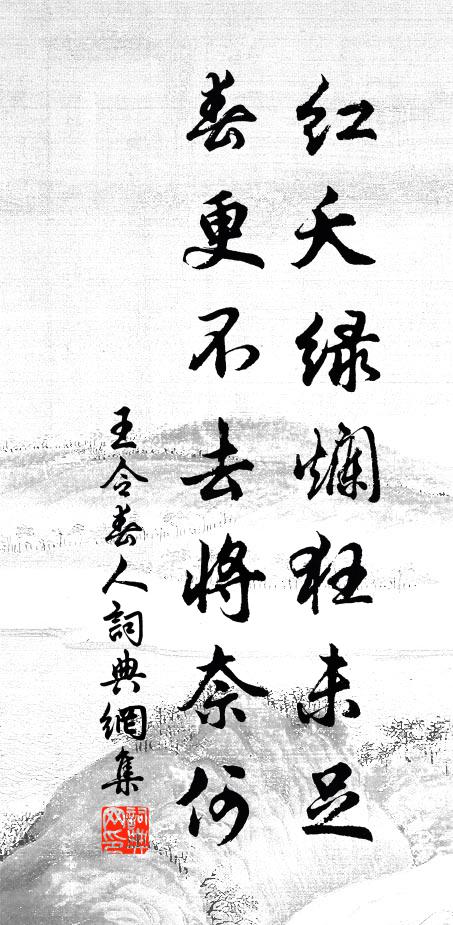 红夭绿爛狂未足
春更不去将奈何
王令春人詞典網集